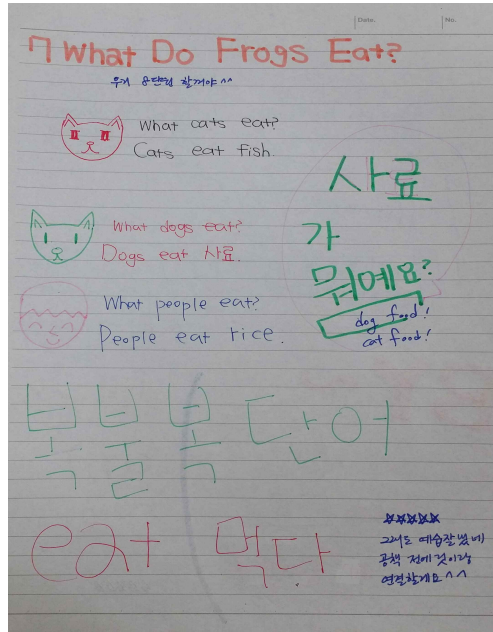 Date. No.
7 What Do Frogs Eat?
우거 8단원 할꺼야^^
What cats eat?
Cats eat fish.
What dogs eat?
Dogs eat 사료.
What people eat?
People eat rice.
사료
가
뭐예요?
dog food!
cat food!
단어
eat 먹다
☆☆☆☆☆
그래도 예습잘했네
공책 전에것이랑
연결할게요^^